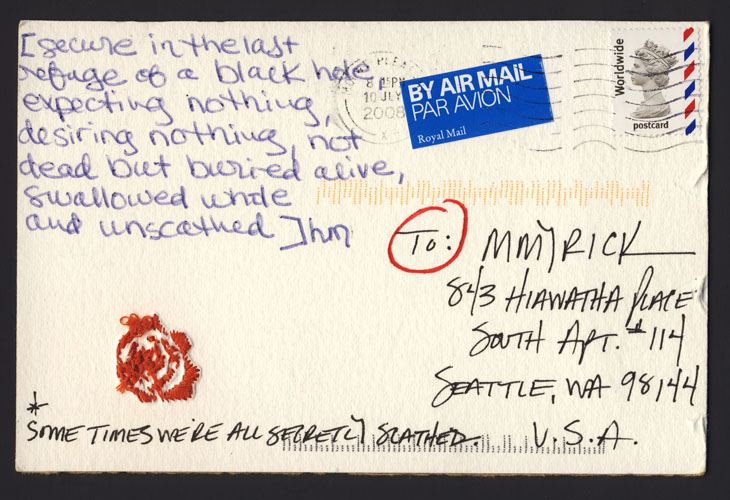 [secure in the last
refuge of a black hole,
expecting nothing,
desiring nothing, not
dead but buried alive,
swallowed whole
and unscathed ]hm
8 PM
10 JLY
2008
BY AIR MAIL
PAR AVION
Royal Mail
Worldwide
postcard
To: MM)RICK
843 HIAWATHA PLACE
SOUTH APT. #114
SEATTLE, WA 98144
U.S.A.
* SOMETIMES WE'RE ALL SECRETLY SCATHED.